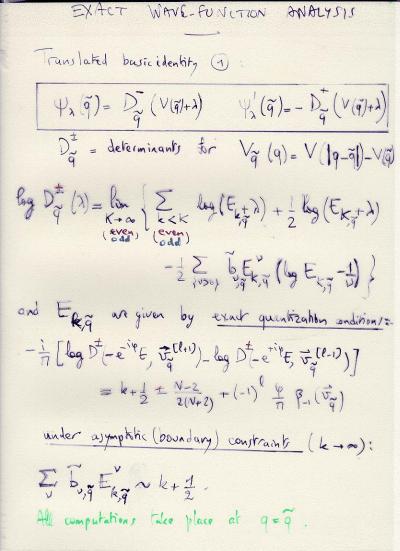 EXACT WAVE-FUNCTION ANALYSIS
Translated basic identity ① :
ψ_λ(q̃) = D⁻_q̃ (V(q̃)+λ) ψ'_λ(q̃) = − D⁺_q̃ (V(q̃)+λ)
D^±_q̃ = determinants for V_q̃(q) = V(|q−q̃|) − V(q̃)
log D^±_q̃(λ) = lim_{K→∞ (even odd)} { Σ_{k<K (even odd)} log(E_{k,q̃}+λ) + ½ log(E_{K,q̃}+λ)
− ½ Σ_{{ν>0}} b̃_{ν,q̃} E^ν_{K,q̃} (log E_{K,q̃} − 1/ν) }
and E_{k,q̃} are given by exact quantization conditions:
− i/π [log D^±(−e^{−iφ}E, v⃗_q̃^{[ℓ+1]}) − log D^±(−e^{+iφ}E, v⃗_q̃^{[ℓ−1]})]
= k+½ ± (N−2)/(2(N+2)) + (−1)^ℓ φ/π β₋₁(v⃗_q̃)
under asymptotic (boundary) constraints (k→∞) :
Σ_ν b̃_{ν,q̃} E^ν_{k,q̃} ~ k + ½ .
All computations take place at q = q̃ .